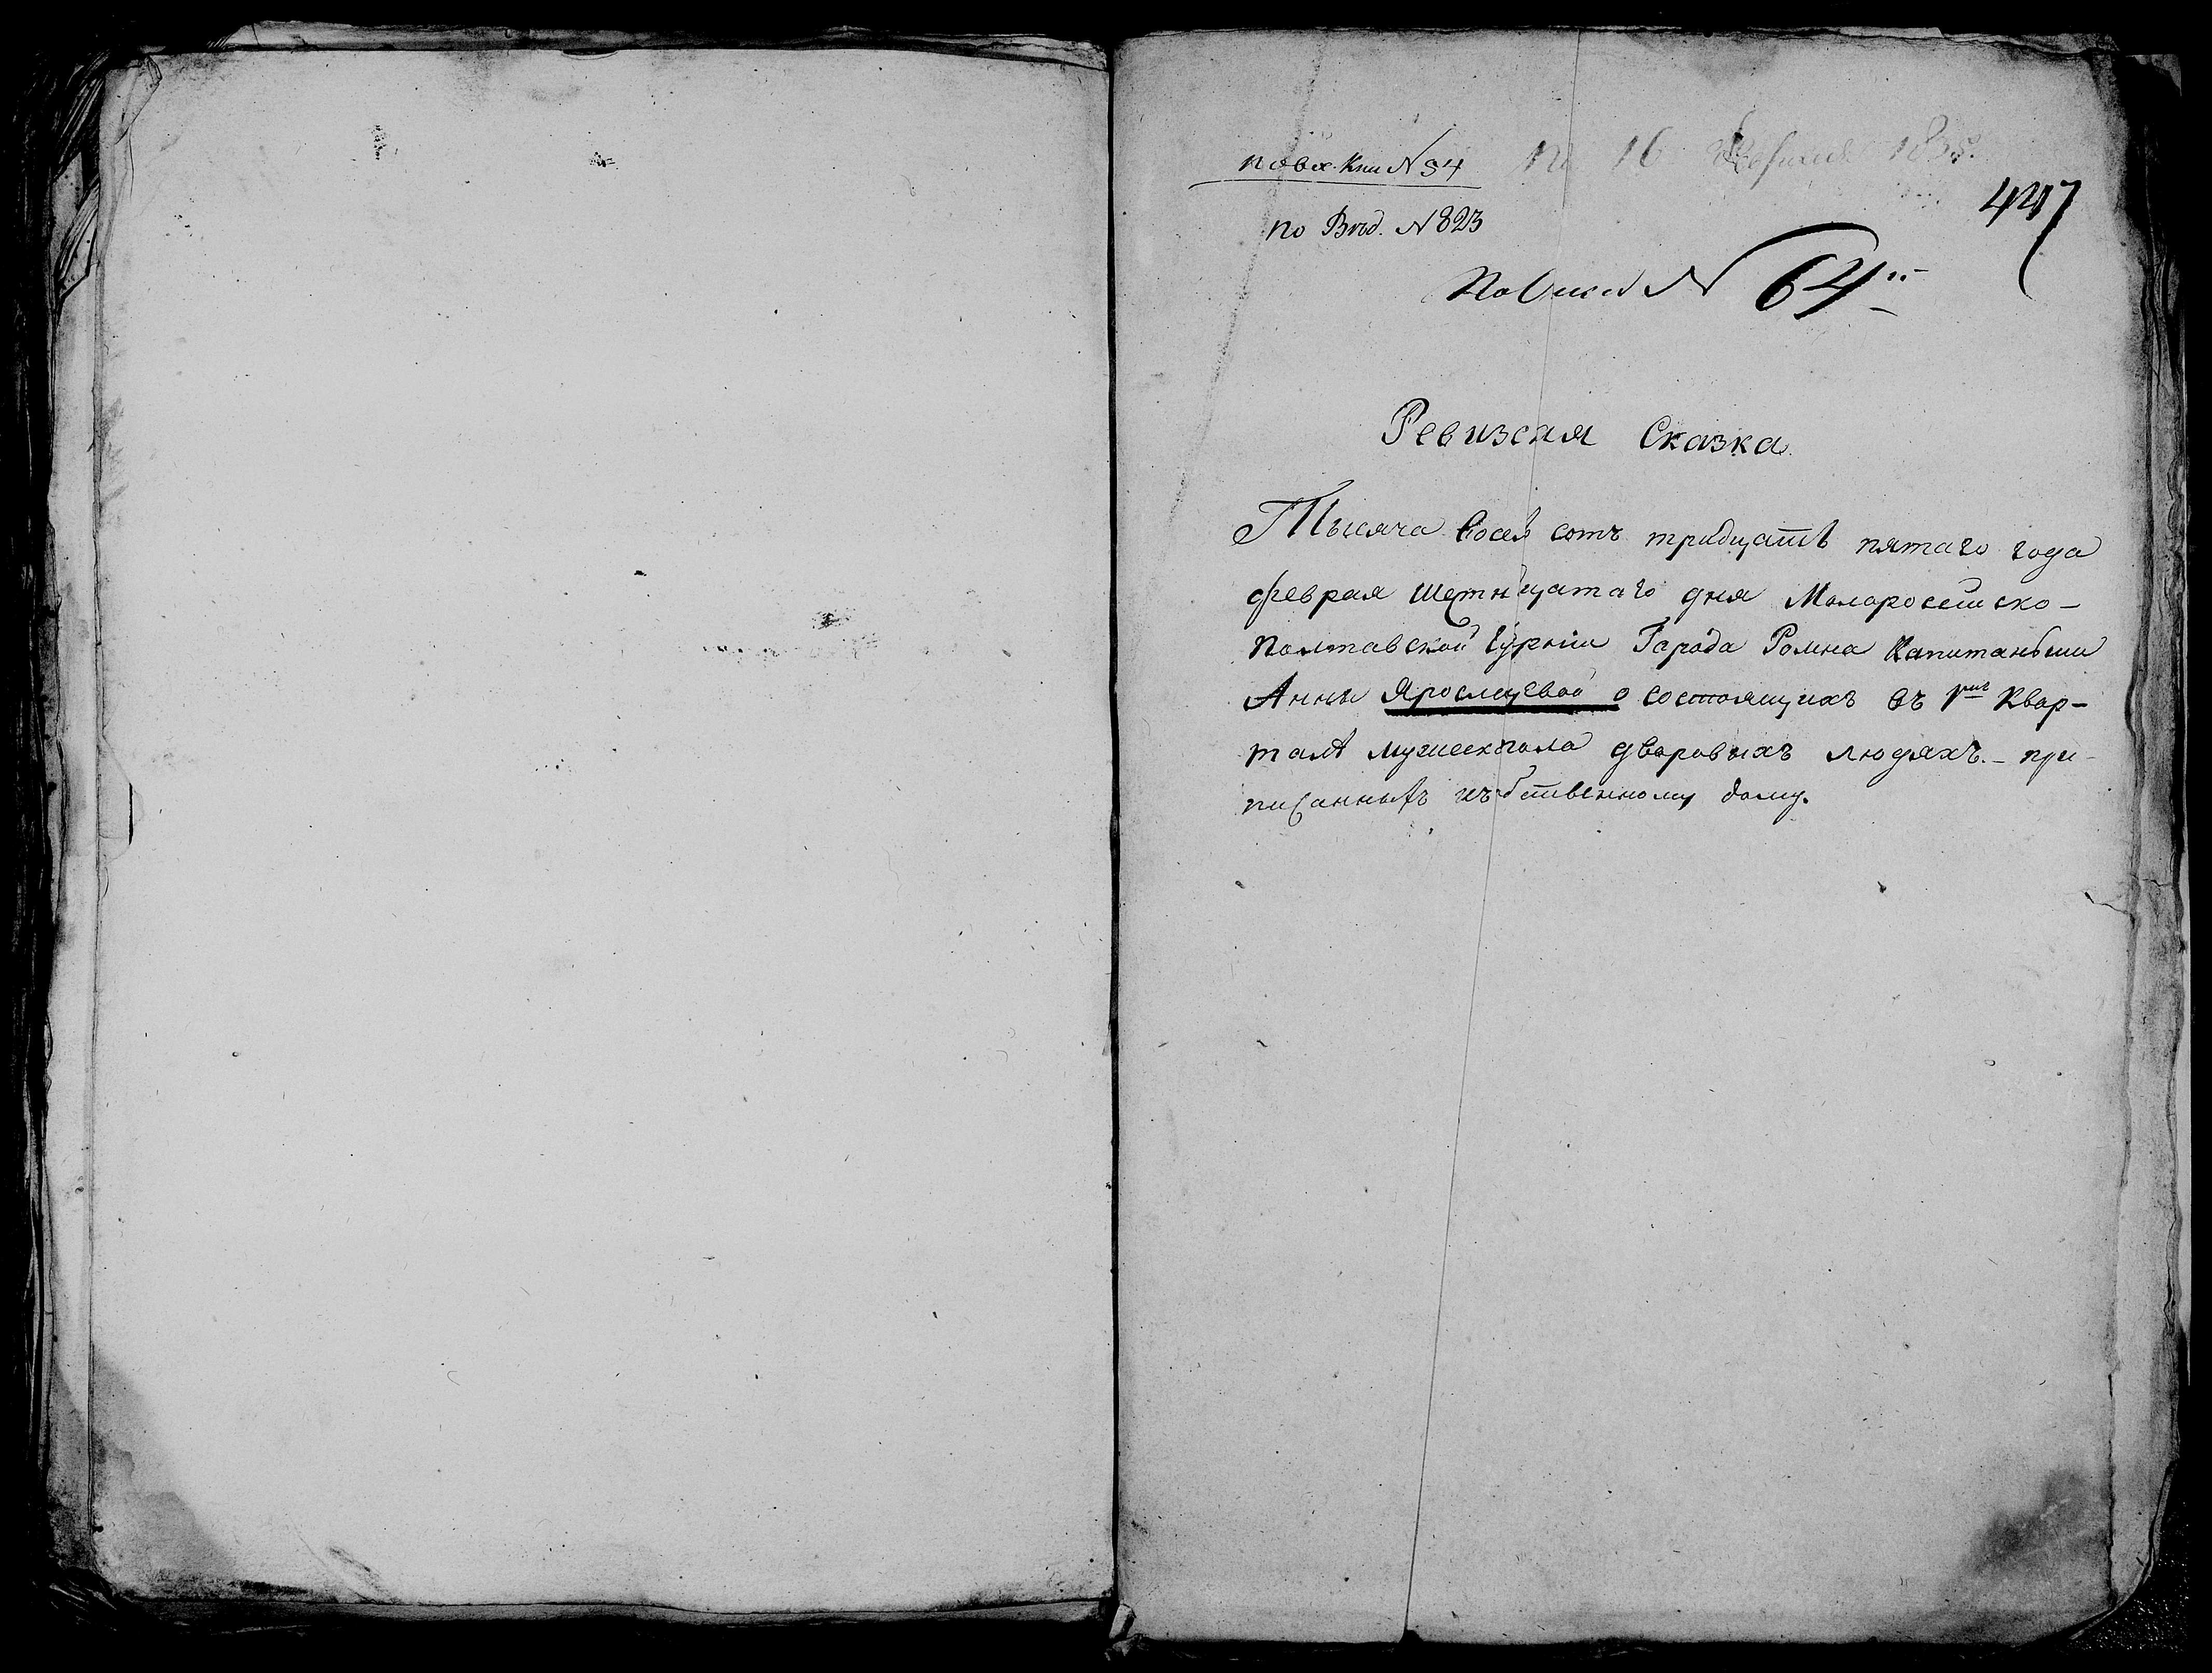 по вх. Кни N 54
16 Февраля 1835.
447
по Вход. N 823
По Описи N 64
Ревизская Сказка
Тысяча восем сотъ тридцать пятаго года
феврая шетнцатаго дня Малоросейско-
полтавской Губрніи Города Ромна Капитанши
Анны Ярославцевой о состоящихъ въ 1мъ Квар-
талѣ мужеск пола дворовыхъ людяхъ. - при-
писанныхъ дому.